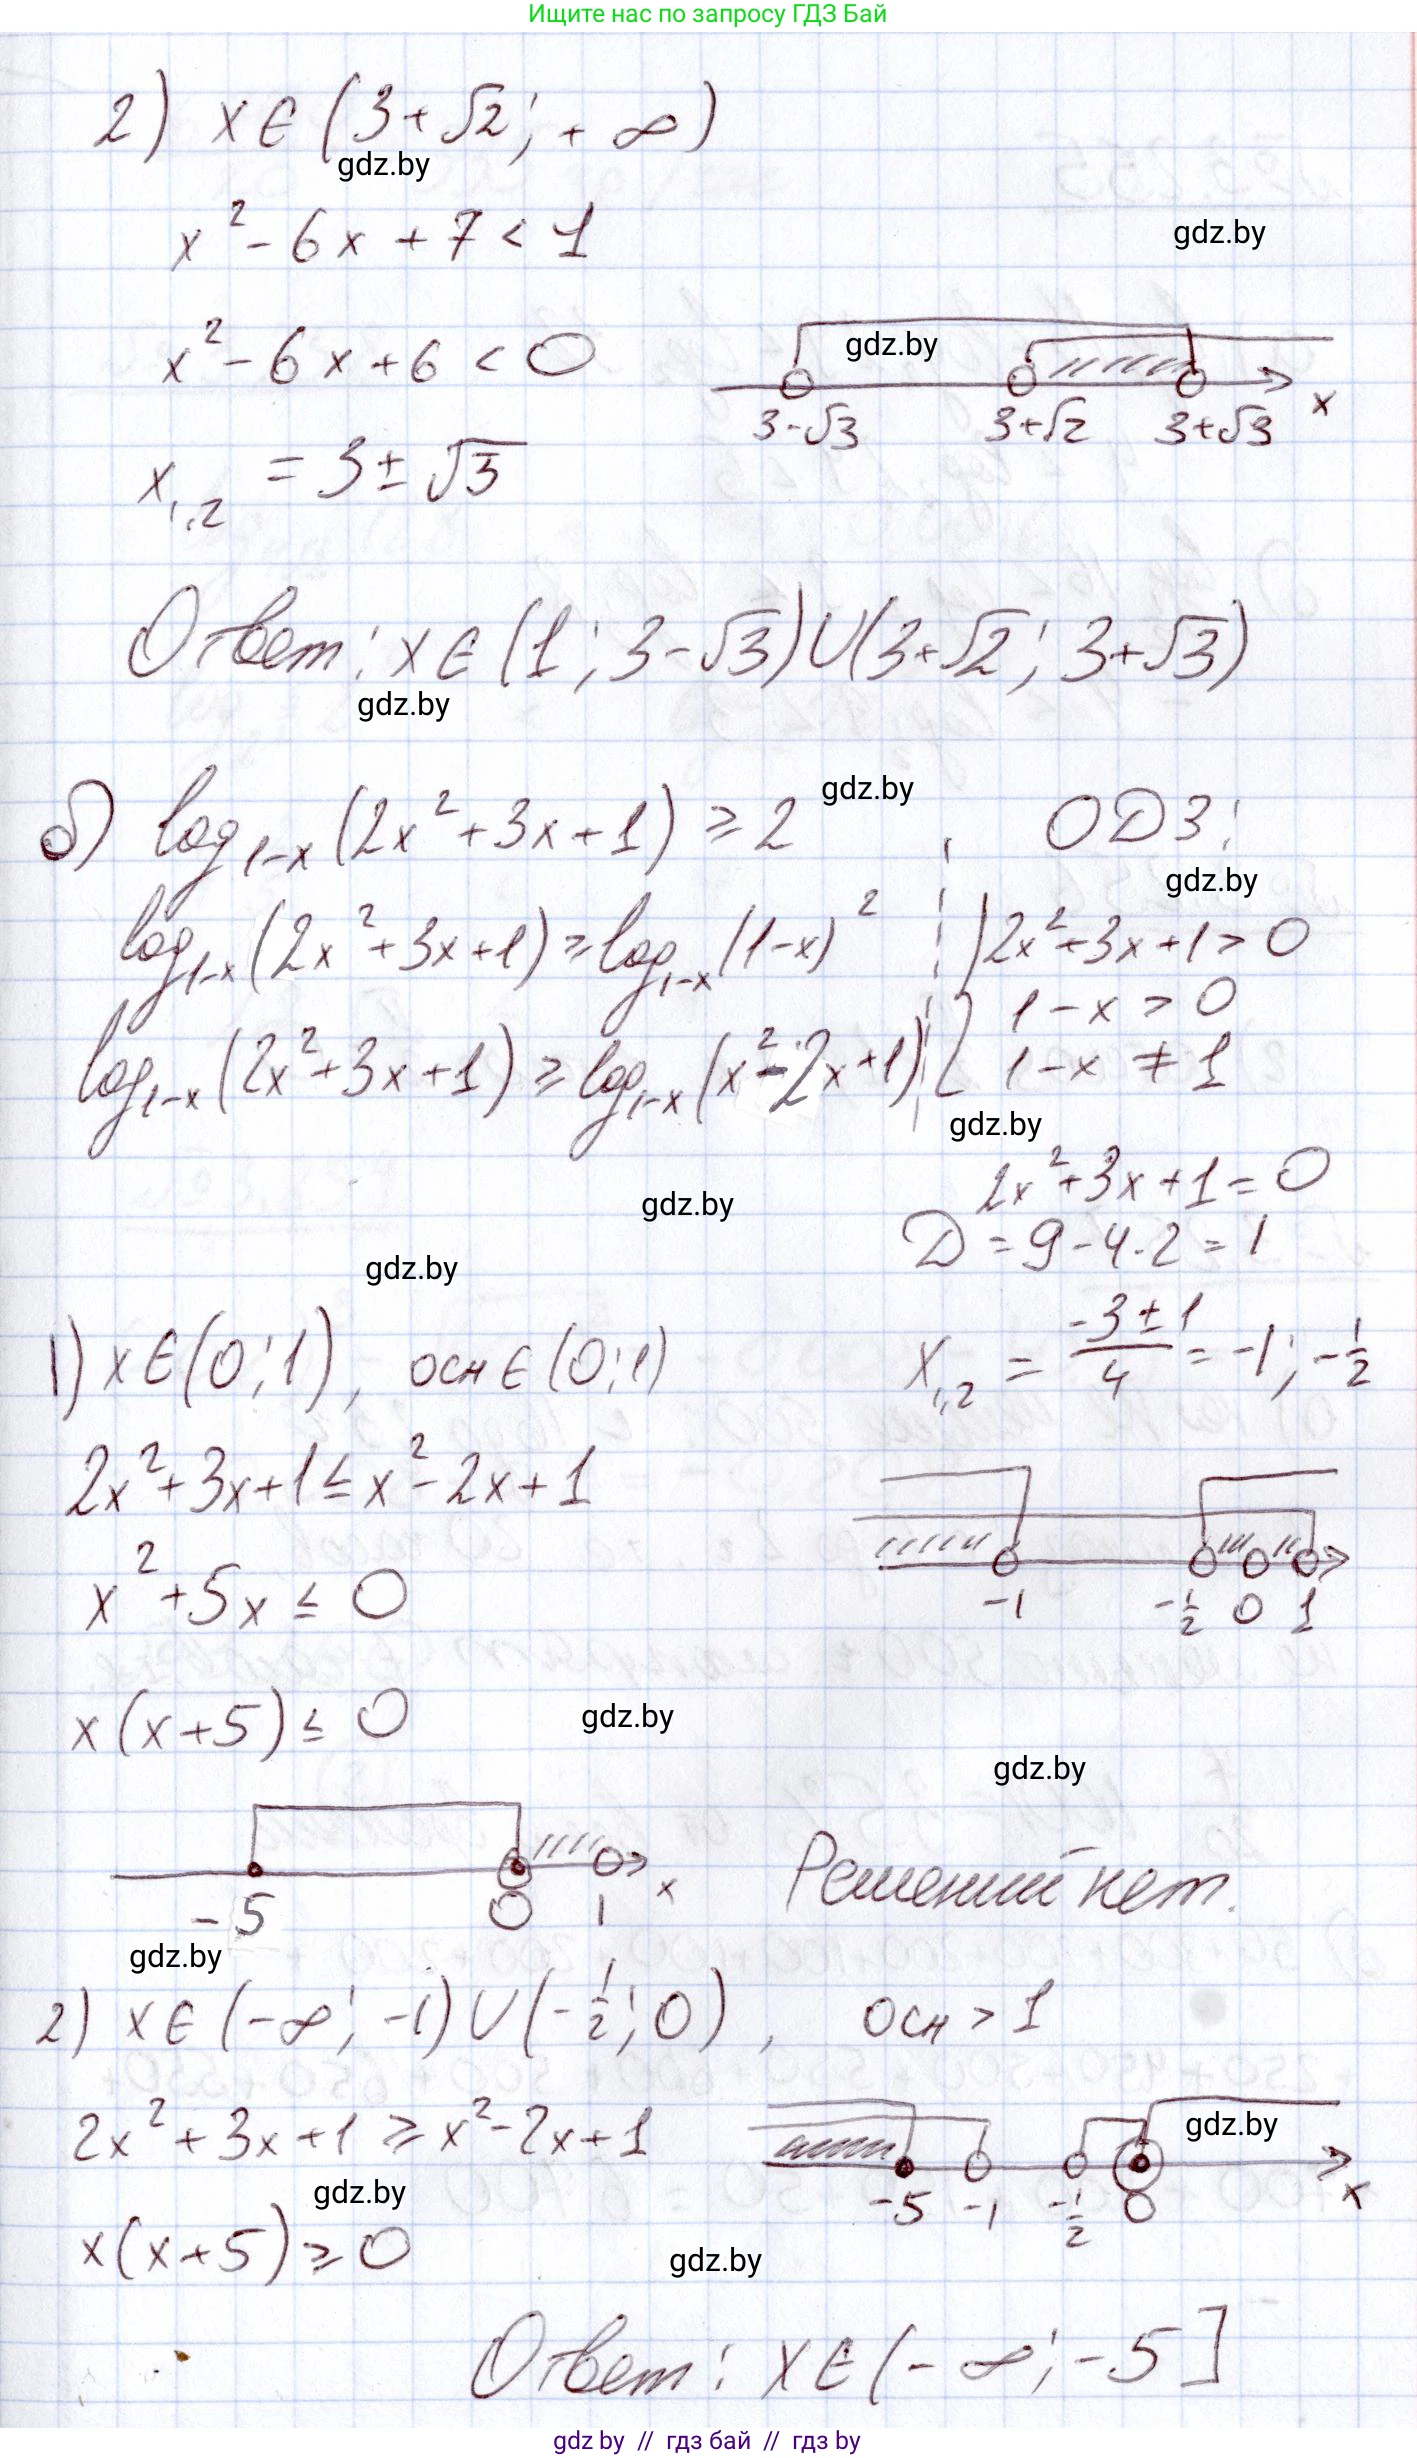 Ищите нас по запросу ГДЗ Бай
2) x ∈ (3+√2; +∞)
gdz.by
x² - 6x + 7 < 1
gdz.by
x² - 6x + 6 < 0
gdz.by
3-√3 3+√2 3+√3 x
x₁,₂ = 3 ± √3
Ответ: x ∈ (1; 3-√3) ∪ (3+√2; 3+√3)
gdz.by
б) log₁₋ₓ(2x²+3x+1) ≥ 2
gdz.by
ОДЗ:
gdz.by
log₁₋ₓ(2x²+3x+1) ≥ log₁₋ₓ(1-x)²
2x²+3x+1 > 0
1-x > 0
log₁₋ₓ(2x²+3x+1) ≥ log₁₋ₓ(x²-2x+1)
1-x ≠ 1
gdz.by
2x²+3x+1 = 0
gdz.by
D = 9-4·2 = 1
gdz.by
1) x ∈ (0; 1), осн ∈ (0; 1)
x₁,₂ = (-3±1)/4 = -1; -1/2
2x²+3x+1 ≤ x²-2x+1
x²+5x ≤ 0
-1 -1/2 0 1
x(x+5) ≤ 0
gdz.by
gdz.by
-5 0 1 x
Решений нет.
gdz.by
2) x ∈ (-∞; -1) ∪ (-1/2; 0), осн > 1
2x²+3x+1 ≥ x²-2x+1
gdz.by
-5 -1 -1/2 0 x
gdz.by
x(x+5) ≥ 0
gdz.by
Ответ: x ∈ (-∞; -5]
gdz.by // гдз бай // gdz by